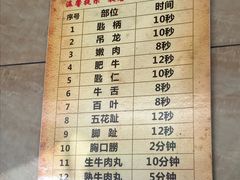 温馨提示
序号 部位 时间
1 匙柄 10秒
2 吊龙 10秒
3 嫩肉 8秒
4 肥牛 12秒
5 匙仁 10秒
6 牛舌 8秒
7 百叶 8秒
8 五花趾 12秒
9 脚趾 12秒
10 胸口捞 2分钟
11 生牛肉丸 10分钟
12 熟牛肉丸 5分钟